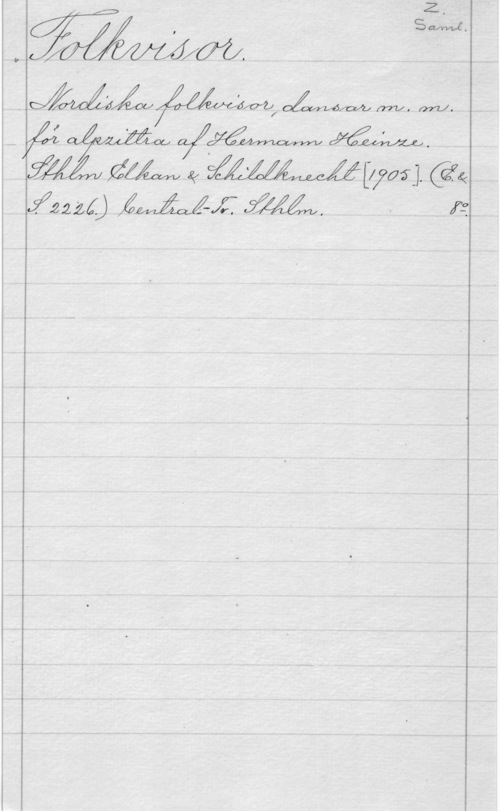 Z.
Saml.
Folkvisor.
Nordiska folkvisor, dansar m. m.
för alpzittra af Hermann Heinze.
Sthlm Elkan & Schildknecht [1905]. (E. &
S. 2226.) Central-Tr. Sthlm. 8º.